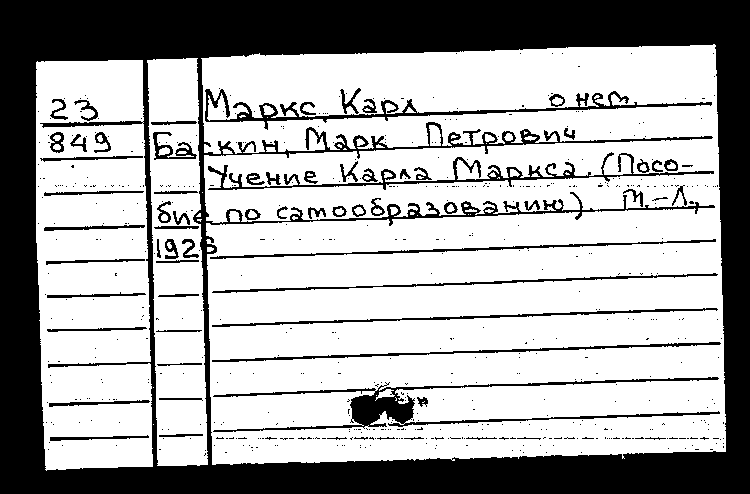 23 Маркс, Карл о нем.
849 Баскин, Марк Петрович
Учение Карла Маркса. (Посо-
бие по самообразованию). М.-Л.,
1928